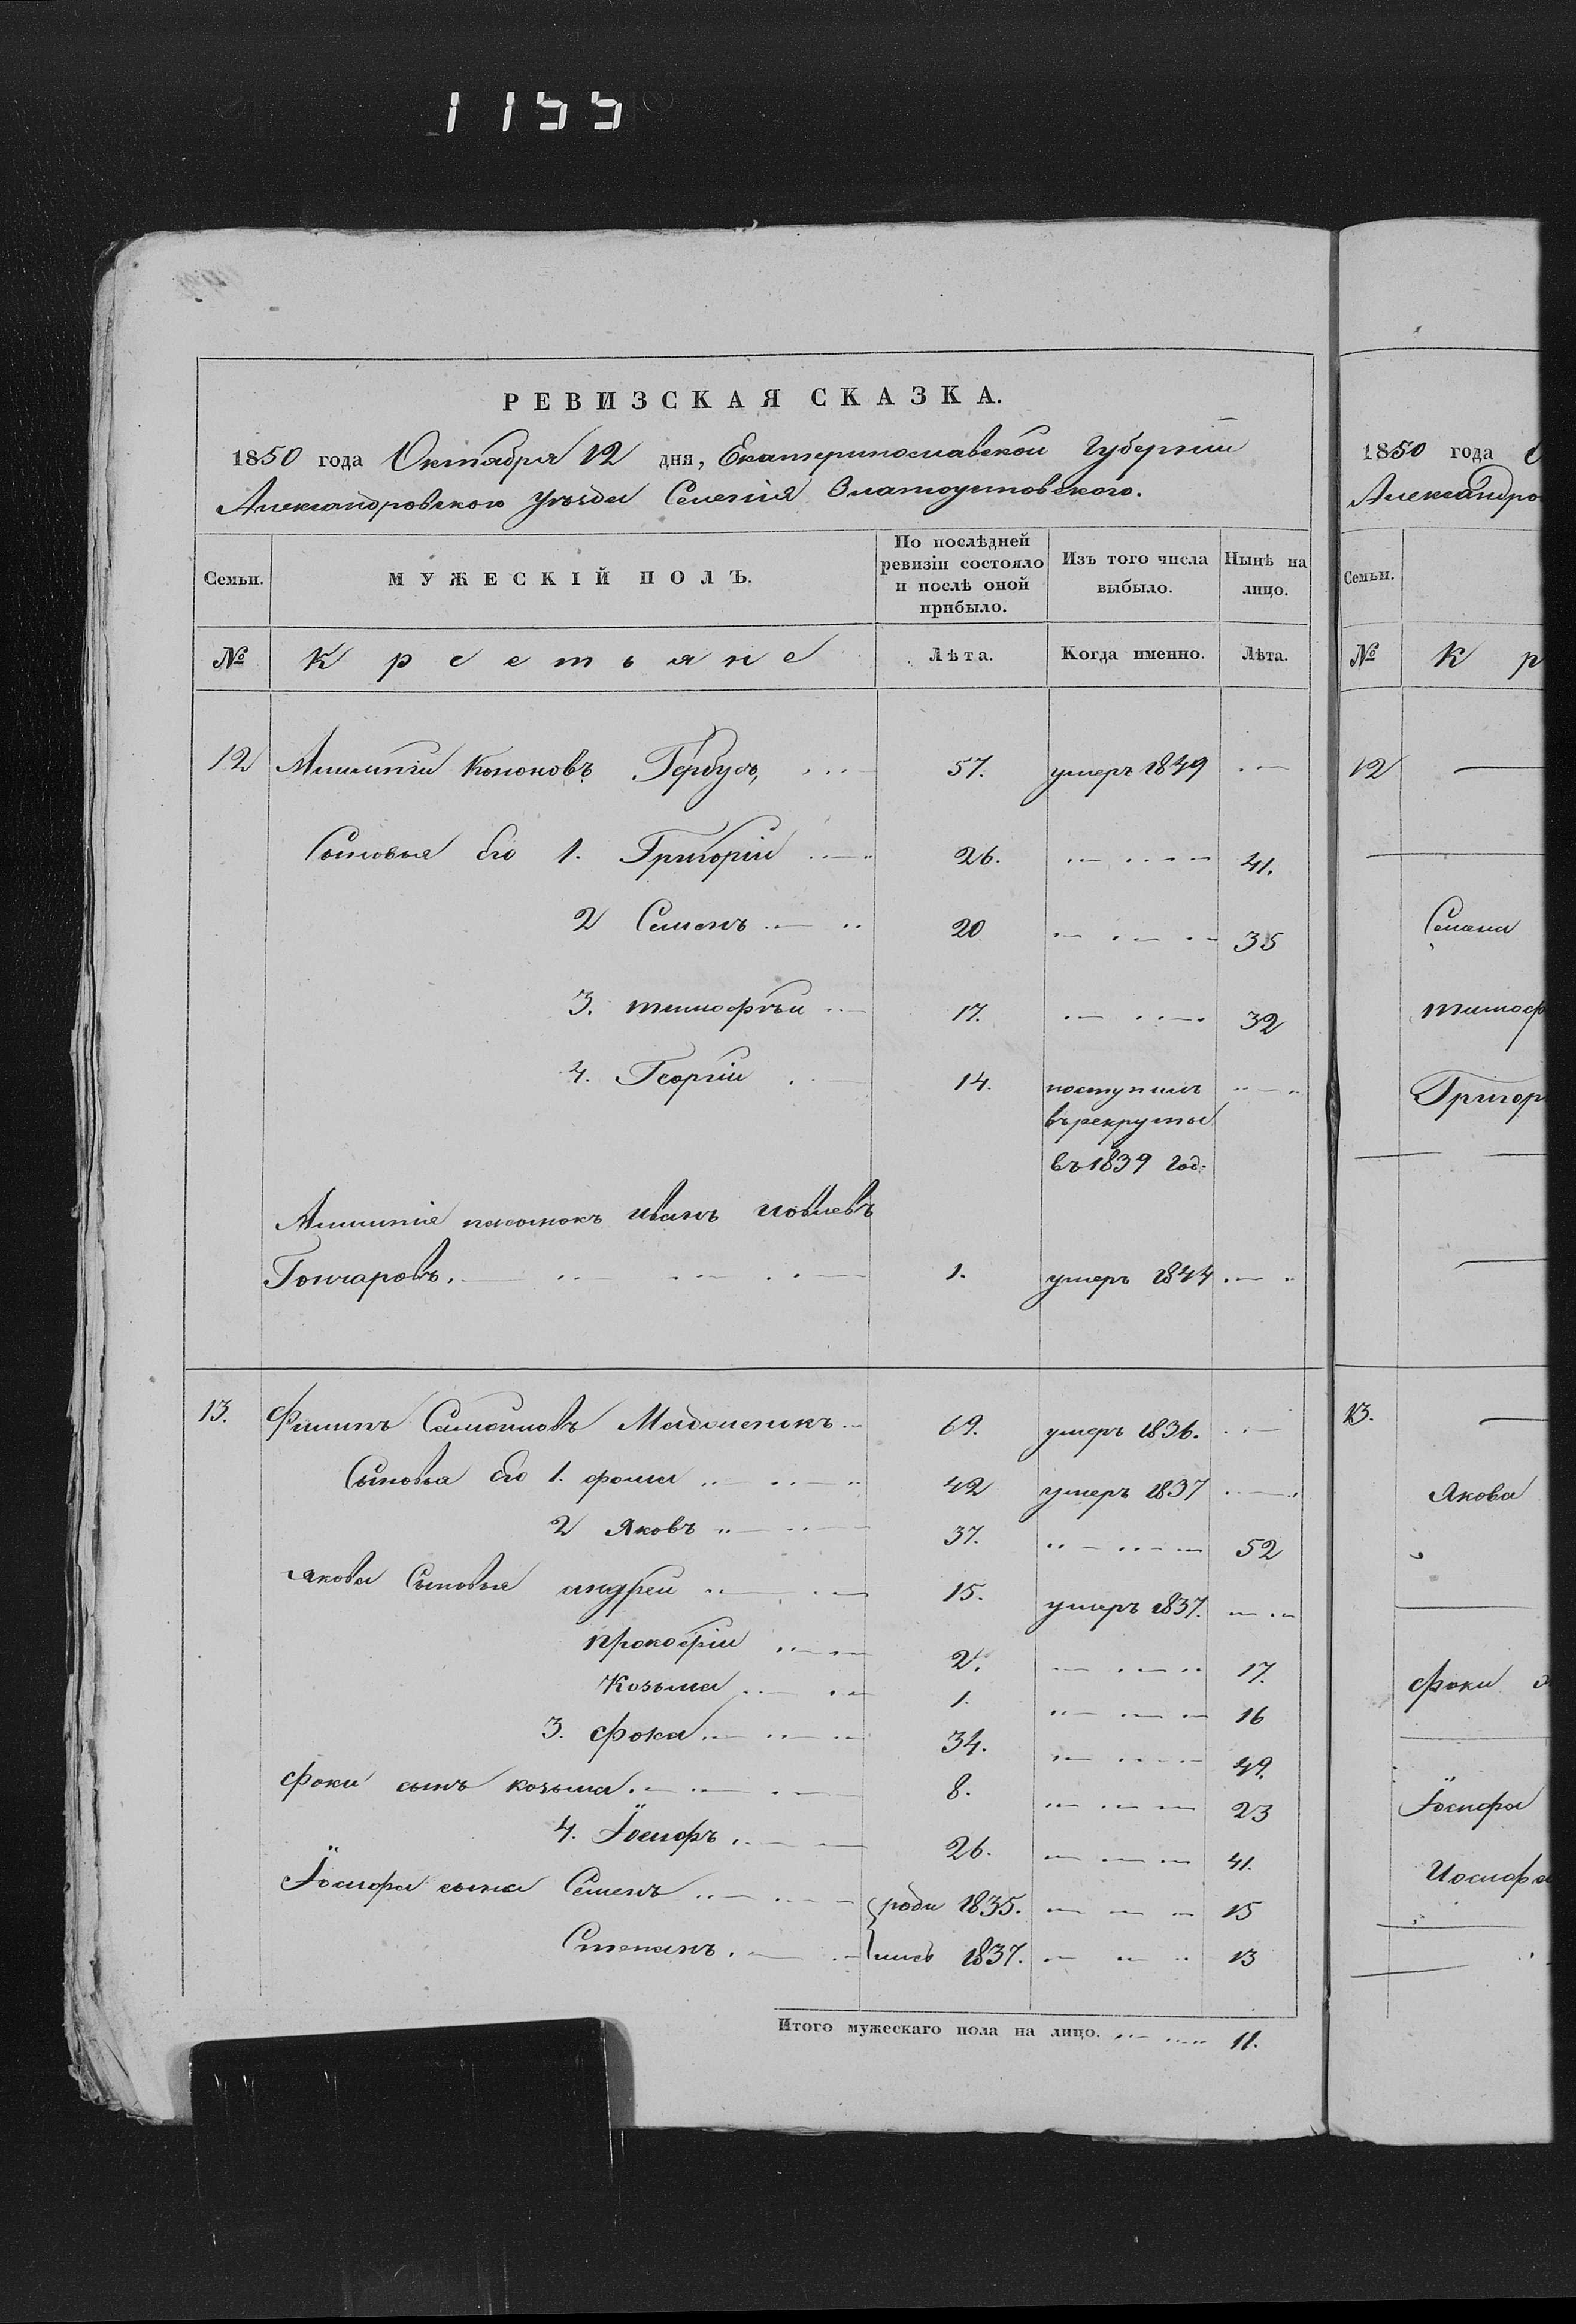 1155
РЕВИЗСКАЯ СКАЗКА.
1850 года Октября 12 дня, Екатеринославской Губерніи
Александровского Уѣзда Селенія Златоустовского.
Семьи. МУЖЕСКІЙ ПОЛЪ. По послѣдней ревизіи состояло и послѣ оной прибыло. Изъ того числа выбыло. Нынѣ на лицо.
№ Крестьяне Лѣта. Когда именно. Лѣта.
12 Кононовъ Гербусъ, 57. умеръ 1849
Сыновья его 1. Григоріи 26. 41.
2 Семенъ 20 35
3. тимофѣи 17. 32
4. Георгіи 14. поступилъ
въ рекруты
въ 1839 год:
пасынокъ иванъ иовлевъ
Гончаровъ. 1. умеръ 1844
13. Филипъ Самоиловъ 69. умеръ 1836.
Сыновья его 1. фома 42 умеръ 1837
2 Яковъ 37. 52
якова Сыновья андреи 15. умеръ 1837.
прокофіи 2. 17.
Козьма 1. 16
3. фока 34. 49.
фоки сынъ козьма 8. 23
4. Іосифъ 26. 41.
Іосифа сына Семенъ роди 1835. 15
Степанъ лись 1837. 13
Итого мужескаго пола на лицо. 11.
1850 года
Александро
Семьи.
№ К р
12
Семена
тимоф
Григор
13.
Якова
фоки
Іосифа
Иосифа